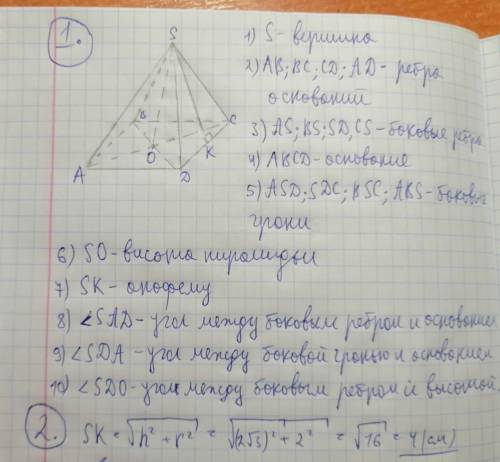 1.
1) S - вершина
2) AB; BC; CD; AD - ребра
оснований
3) AS; BS; SD, CS - боковые ребра
4) ABCD - основание
5) ASD; SDC; BSC; ABS - боковые
грани
S
B
C
O
K
A
D
6) SO - висота пирамиды
7) SK - апофему
8) ∠SAD - угол между боковым ребром и основанием
9) ∠SDA - угол между боковой гранью и основанием
10) ∠SDO - угол между боковым ребром и высотой
2. SK = √h² + r² = √(2√3)² + 2² = √16 = 4 (см)